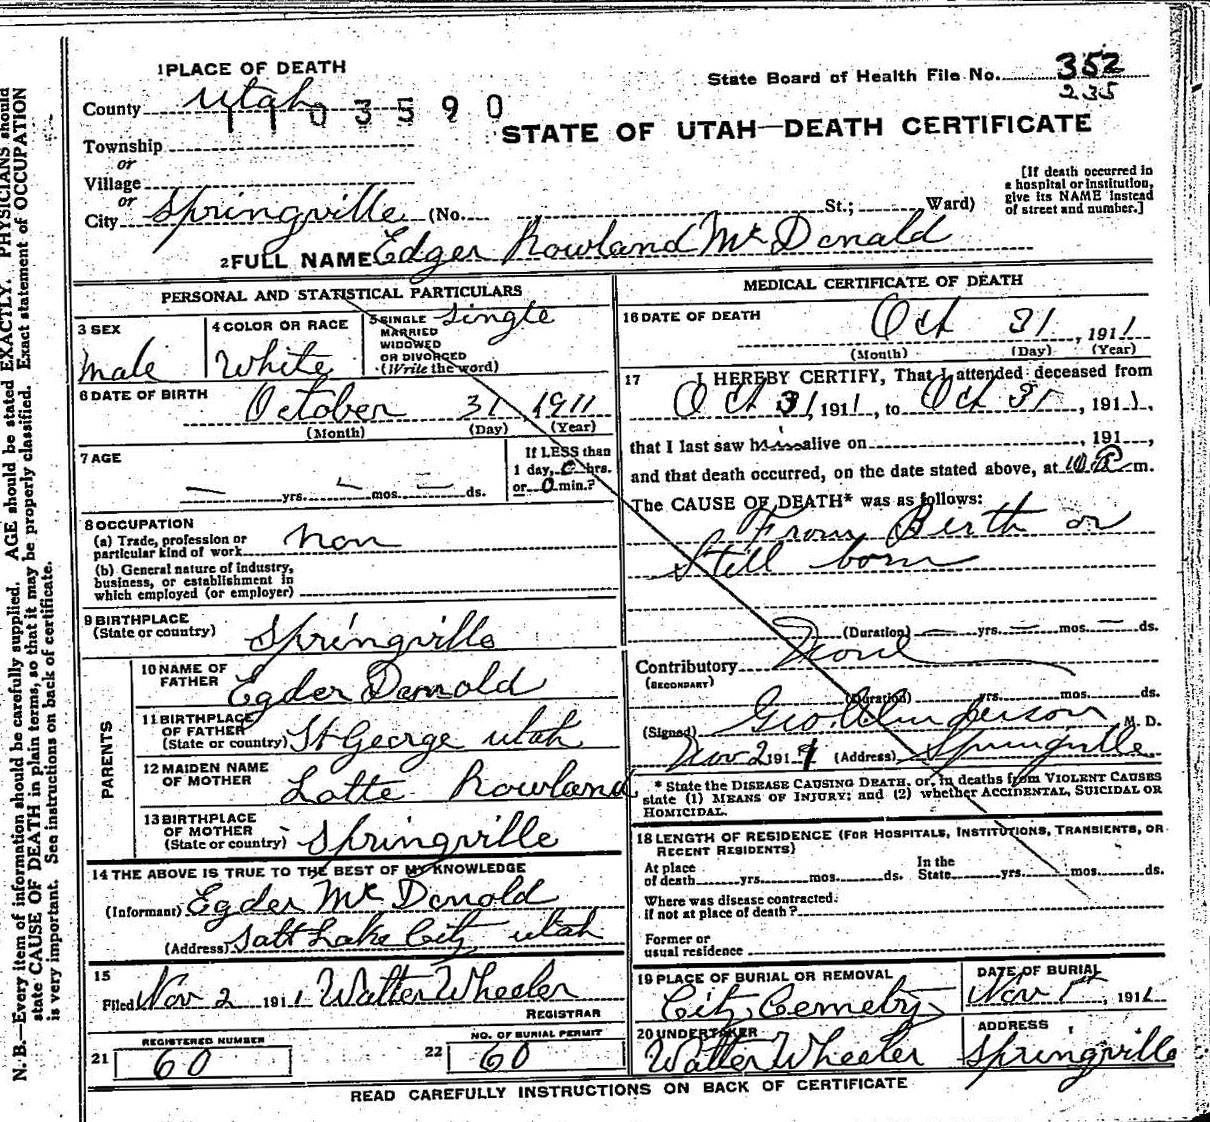 1 PLACE OF DEATH
State Board of Health File No. 352
235
County Utah
1103590
STATE OF UTAH—DEATH CERTIFICATE
Township
or
Village
or
City Springville (No. St.; Ward)
[If death occurred in
a hospital or institution,
give its NAME instead
of street and number.]
2 FULL NAME Edger Rowland Mc Donald
PERSONAL AND STATISTICAL PARTICULARS
3 SEX
male
4 COLOR OR RACE
White
5 SINGLE
MARRIED
WIDOWED
OR DIVORCED
(Write the word)
single
6 DATE OF BIRTH October 31, 1911
(Month) (Day) (Year)
7 AGE
— yrs. — mos. — ds.
If LESS than
1 day, 0 hrs.
or 0 min.?
8 OCCUPATION
(a) Trade, profession or
particular kind of work non
(b) General nature of industry,
business, or establishment in
which employed (or employer)
9 BIRTHPLACE
(State or country) Springville
PARENTS
10 NAME OF
FATHER Egder Donold
11 BIRTHPLACE
OF FATHER
(State or country) St George utah
12 MAIDEN NAME
OF MOTHER Lotte Rowland
13 BIRTHPLACE
OF MOTHER
(State or country) Springville
14 THE ABOVE IS TRUE TO THE BEST OF MY KNOWLEDGE
(Informant) Egder Mc Donold
(Address) Salt Lake City utah
15
Filed Nov 2 1911 Walter Wheeler
REGISTRAR
21 REGISTERED NUMBER
60
22 NO. OF BURIAL PERMIT
60
MEDICAL CERTIFICATE OF DEATH
16 DATE OF DEATH Oct 31, 1911
(Month) (Day) (Year)
17 I HEREBY CERTIFY, That I attended deceased from
Oct 31, 1911, to Oct 31, 1911,
that I last saw him alive on , 191 ,
and that death occurred, on the date stated above, at 10 P m.
The CAUSE OF DEATH* was as follows:
From Berth or
Still born
(Duration) — yrs. — mos. — ds.
Contributory
(SECONDARY)
(Duration) yrs. mos. ds.
(Signed) Geo. M. D.
Nov 2 191 (Address) Springville
* State the DISEASE CAUSING DEATH, or, in deaths from VIOLENT CAUSES
state (1) MEANS OF INJURY; and (2) whether ACCIDENTAL, SUICIDAL OR
HOMICIDAL.
18 LENGTH OF RESIDENCE (FOR HOSPITALS, INSTITUTIONS, TRANSIENTS, OR
RECENT RESIDENTS)
At place
of death yrs. mos. ds.
In the
State yrs. mos. ds.
Where was disease contracted.
if not at place of death?
Former or
usual residence
19 PLACE OF BURIAL OR REMOVAL
City Cemetry
DATE OF BURIAL
Nov 1st, 1911
20 UNDERTAKER
Walter Wheeler
ADDRESS
Springville
READ CAREFULLY INSTRUCTIONS ON BACK OF CERTIFICATE
N. B.—Every item of information should be carefully supplied. AGE should be stated EXACTLY. PHYSICIANS should
state CAUSE OF DEATH in plain terms, so that it may be properly classified. Exact statement of OCCUPATION
is very important. See instructions on back of certificate.